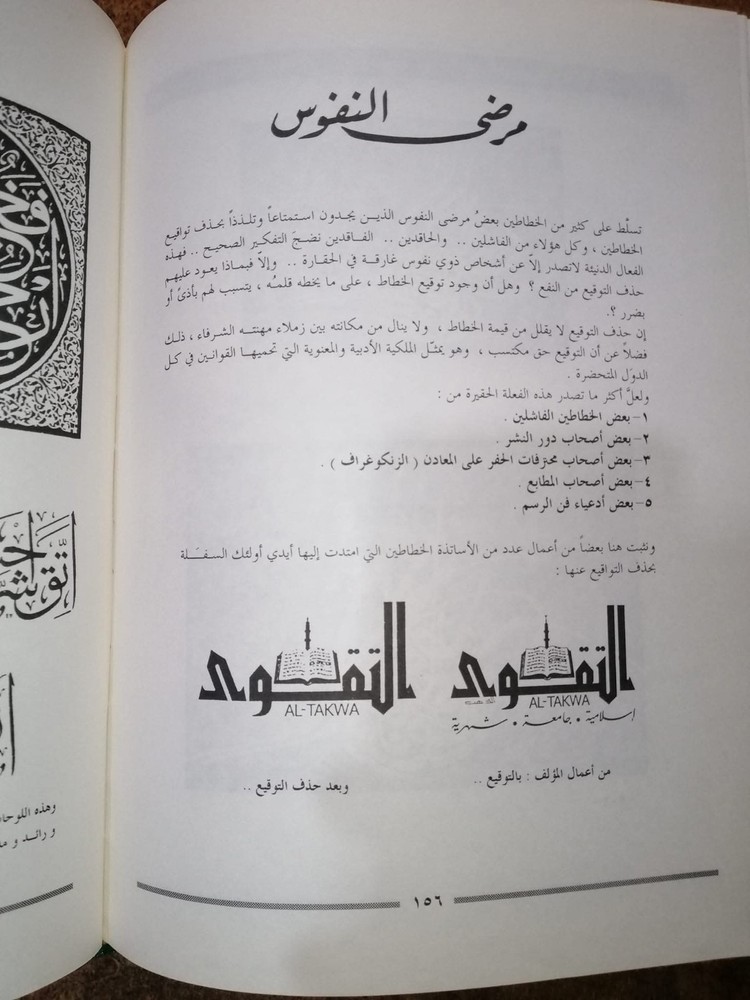 مرضى النفوس
تسلّط على كثير من الخطاطين بعضُ مرضى النفوس الذيـن يجدون استمتاعاً وتلذذاً بحذف تواقيع
الخطاطين ، وكل هؤلاء من الفاشلين .. والحاقدين .. الفـاقدين نضجَ التفكـير الصحيح .. فهذه
الفعال الدنيئة لاتصدر إلاّ عن أشخاص ذوي نفوس غارقـة في الحقـارة .. وإلاّ فبماذا يعود عليهم
حذف التوقيع من النفع ؟ وهل أن وجود توقيع الخطاط ، على ما يخطه قلمـُه ، يتسبب لهم بأذىً أو
بضرر ؟.
إن حذف التوقيع لا يقلل من قيمة الخطاط ، ولا ينال من مكانته بين زملاء مهنتـه الشرفاء ، ذلـك
فضلاً عن أن التوقيع حق مكتسب ، وهو يمثّـل الملكية الأدبية والمعنوية التي تحميهـا القوانـين في كـل
الدوَل المتحضرة .
ولعلَّ أكثر ما تصدر هذه الفعلة الحقيرة من :
١- بعض الخطاطين الفاشلين .
٢- بعض أصحاب دور النشر .
٣- بعض أصحاب محترفات الحفر على المعادن ( الزنكوغراف ) .
٤- بعض أصحاب المطابع .
٥- بعض أدعياء فن الرسم .
ونثبت هنا بعضـاً من أعمال عدد من الأساتذة الخطاطين التي امتدت إليها أيدي أولئك السفـلـة
بحذف التواقيع عنها :
التقوى
AL-TAKWA
إسلامية • جامعة • شهرية
التقوى
AL-TAKWA
من أعمال المؤلف : بالتوقيع ..
وبعد حذف التوقيع ..
١٥٦
وهذه اللوحا